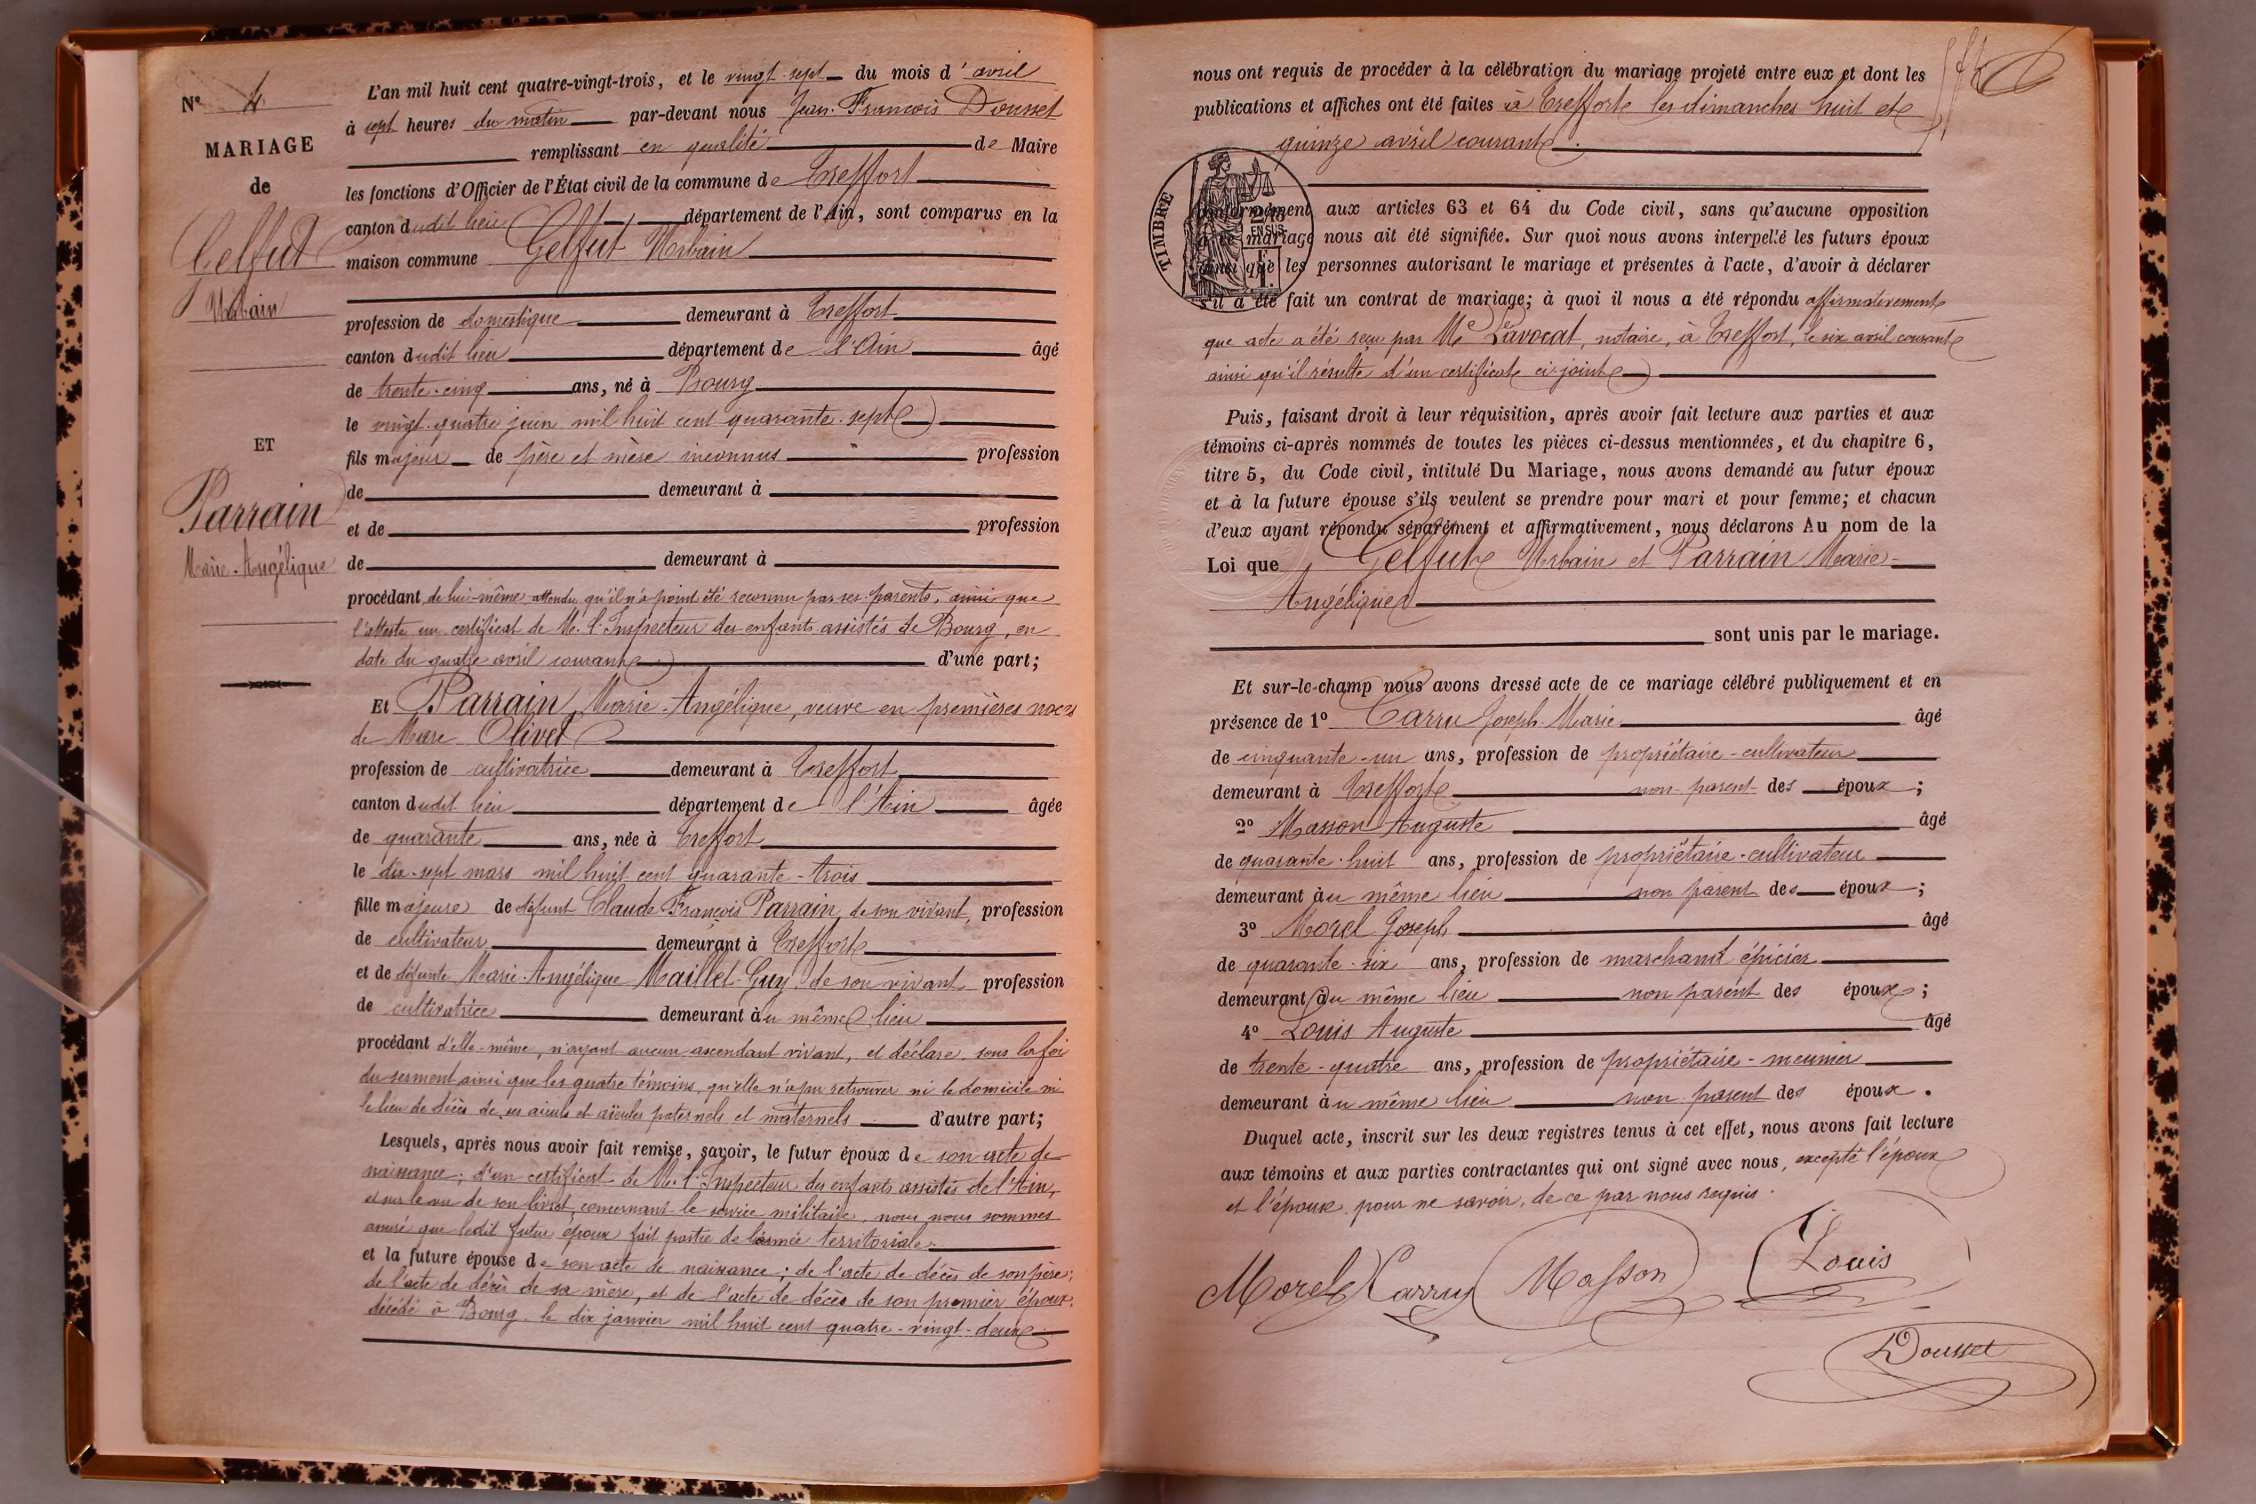 N° 4
MARIAGE
de
Gelfut
Urbain
ET
Parrain
Marie-Angélique
L'an mil huit cent quatre-vingt-trois, et le vingt-sept du mois d'avril
à sept heures du matin par-devant nous Jean-François Dousset
remplissant en qualité de Maire
les fonctions d'Officier de l'État civil de la commune de Treffort
canton dudit lieu département de l'Ain, sont comparus en la
maison commune Gelfut Urbain
profession de domestique demeurant à Treffort
canton dudit lieu département de l'Ain âgé
de trente-cinq ans, né à Bourg
le vingt-quatre juin mil huit cent quarante-sept
fils majeur de père et mère inconnus profession
de demeurant à
et de profession
de demeurant à
procédant de lui-même attendu qu'il n'a point été reconnu par ses parents, ainsi que
l'atteste un certificat de Mr. l'Inspecteur des enfants assistés de Bourg, en
date du quatre avril courant d'une part;
Et Parrain Marie-Angélique, veuve en premières noces
de Marc Olivet
profession de cultivatrice demeurant à Treffort
canton dudit lieu département de l'Ain âgée
de quarante ans, née à Treffort
le dix-sept mars mil huit cent quarante-trois
fille majeure de défunt Claude-François Parrain, de son vivant, profession
de cultivateur demeurant à Treffort
et de défunte Marie-Angélique Maillet-Guy de son vivant profession
de cultivatrice demeurant au même lieu
procédant d'elle-même, n'ayant aucun ascendant vivant, et déclare, sous la foi
du serment, ainsi que les quatre témoins, qu'elle n'a pu retrouver ni le domicile ni
le lieu de décès de ses aïeuls et aïeules paternels et maternels d'autre part;
Lesquels, après nous avoir fait remise, savoir, le futur époux de son acte de
naissance; d'un certificat de Mr. l'Inspecteur des enfants assistés de l'Ain,
et sur le vu de son livret concernant le service militaire, nous nous sommes
assuré que ledit futur époux fait partie de l'armée territoriale.
et la future épouse de son acte de naissance; de l'acte de décès de son père;
de l'acte de décès de sa mère, et de l'acte de décès de son premier époux,
décédé à Bourg le dix janvier mil huit cent quatre-vingt-deux
nous ont requis de procéder à la célébration du mariage projeté entre eux et dont les
publications et affiches ont été faites à Treffort les dimanches huit et
quinze avril courant.
TIMBRE
2/10
EN SUS
1 F.
conformément aux articles 63 et 64 du Code civil, sans qu'aucune opposition
à ce mariage nous ait été signifiée. Sur quoi nous avons interpellé les futurs époux
ainsi que les personnes autorisant le mariage et présentes à l'acte, d'avoir à déclarer
s'il a été fait un contrat de mariage; à quoi il nous a été répondu affirmativement
que acte a été reçu par Me Lavocat, notaire, à Treffort, le six avril courant
ainsi qu'il résulte d'un certificat ci-joint
Puis, faisant droit à leur réquisition, après avoir fait lecture aux parties et aux
témoins ci-après nommés de toutes les pièces ci-dessus mentionnées, et du chapitre 6,
titre 5, du Code civil, intitulé Du Mariage, nous avons demandé au futur époux
et à la future épouse s'ils veulent se prendre pour mari et pour femme; et chacun
d'eux ayant répondu séparément et affirmativement, nous déclarons Au nom de la
Loi que Gelfut Urbain et Parrain Marie-
Angélique
sont unis par le mariage.
Et sur-le-champ nous avons dressé acte de ce mariage célébré publiquement et en
présence de 1° Carru Joseph-Marie âgé
de cinquante-un ans, profession de propriétaire-cultivateur
demeurant à Treffort non parent des époux;
2° Masson Auguste âgé
de quarante-huit ans, profession de propriétaire-cultivateur
demeurant au même lieu non parent des époux;
3° Morel Joseph âgé
de quarante-six ans, profession de marchand épicier
demeurant au même lieu non parent des époux;
4° Louis Auguste âgé
de trente-quatre ans, profession de propriétaire-meunier
demeurant au même lieu non parent des époux.
Duquel acte, inscrit sur les deux registres tenus à cet effet, nous avons fait lecture
aux témoins et aux parties contractantes qui ont signé avec nous, excepté l'époux
et l'épouse pour ne savoir, de ce par nous requis.
Morel Carru Masson Louis
Dousset